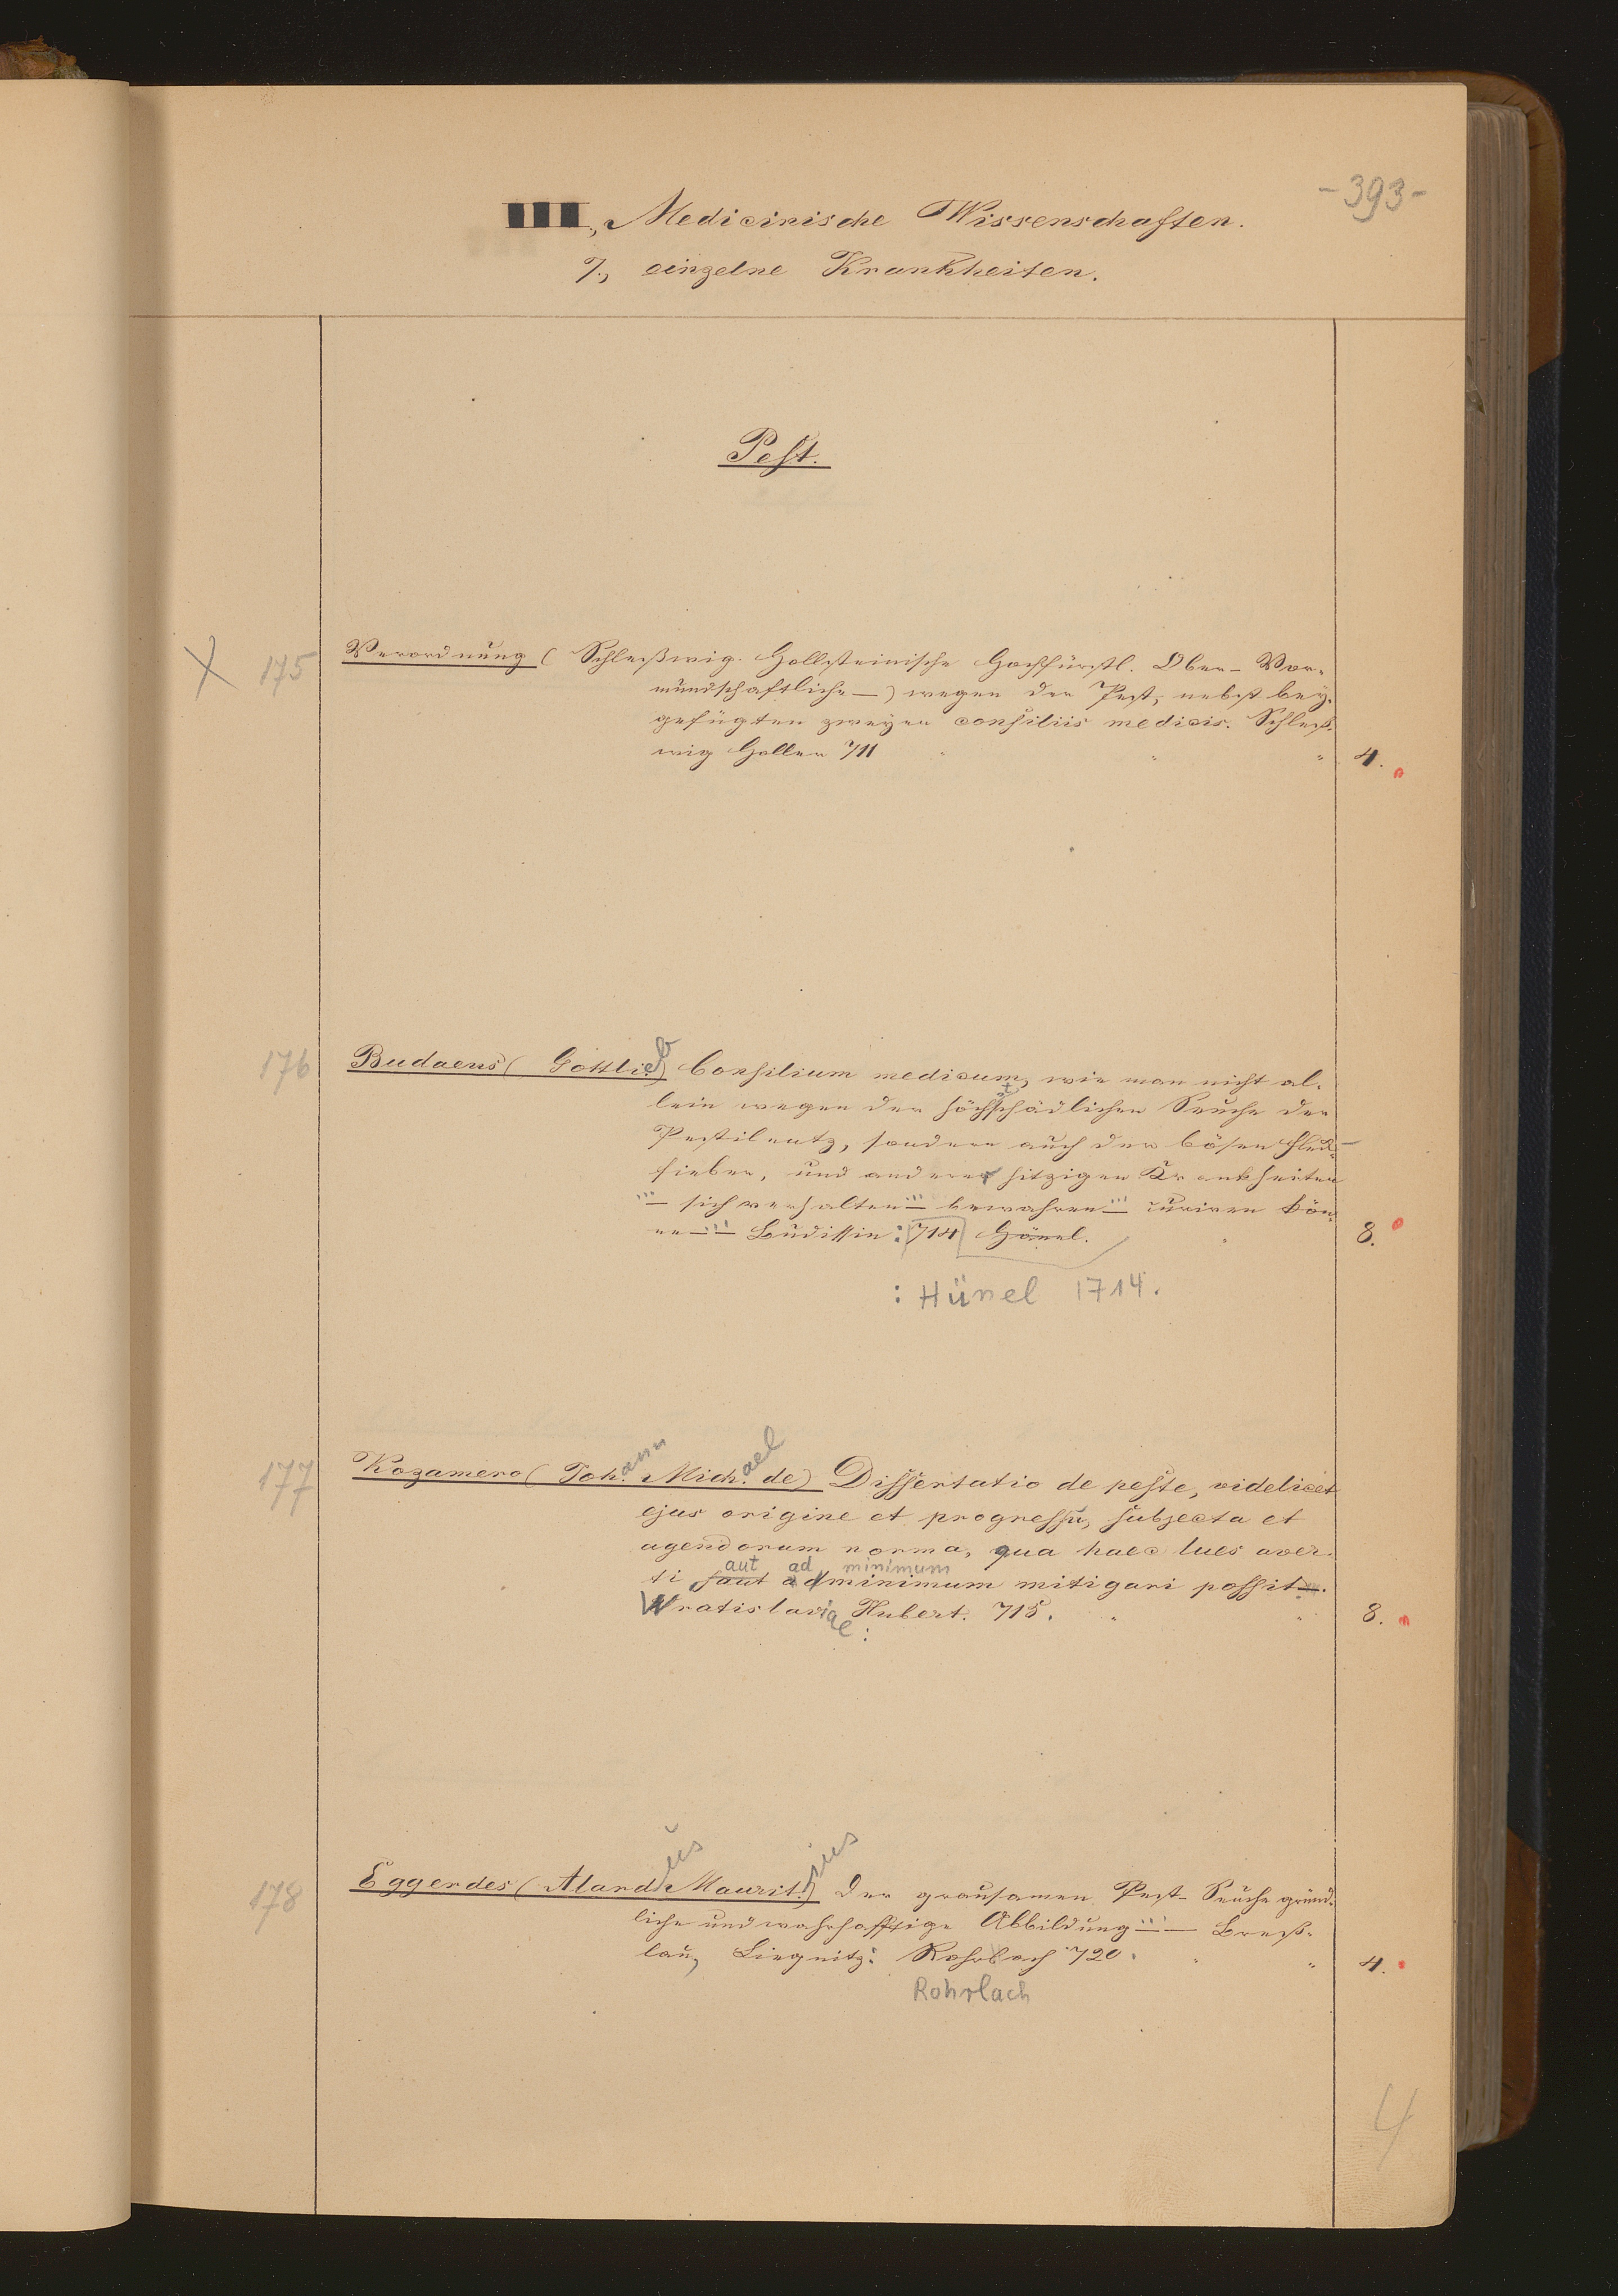 -393-
III., Medicinische Wissenschaften.
7., einzelne Krankheiten.
Pest.
X 175 Verordnung ( Schleßwig. Hollsteinische Hochfürstl. Ober-Vor-
mundschaftliche —) wegen der Pest, nebst bey-
gefügten zweyen consiliis medicis. Schleß-
wig Holler 711 " " " 4.
176 Budaeus ( Gottlieb) Consilium medicum, wie man nicht al-
lein wegen der höchstschädlichen Seuche der
Pestilentz, sondern auch der bösen Fleck-
fieber, und anderer hitzigen Krankheiten
— sich verhalten — bewahren — curiren kön-
ne — Budissin: 714 Hänel. " 8.
: Hünel 1714.
177 Kozamero ( Johann Michael de) Dissertatio de peste, videlicet
ejus origine et progressu, subjecta et
agendorum norma, qua haec lues aver-
aut ad minimum
ti saut adminimum mitigari possit.
Wratislaviae: Hubert. 715. " " 8.
178 Eggerdes ( Alardus Mauritius) Der grausamen Pest-Seuche gründ-
liche und wahrhafftige Abbildung — Breß-
lau, Liegnitz: Rohrbach 720. " " 4.
Rohrlach
4